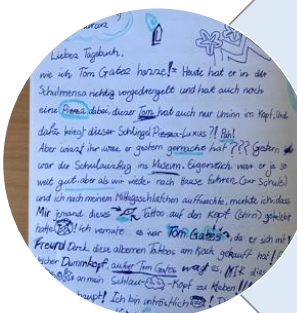 Liebes Tagebuch,
wie ich Tom Gates hasse!= Heute hat er in der
Schulmensa richtig vorgedrängelt und hat auch noch
eine Pizza dabei, dieser Tom hat auch nur Unsinn im Kopf, Und
dafür kriegt dieser Schlingel Pizza-Luxus?! Pah!
Aber wisst ihr was er gestern gemacht hat??? Gestern
war der Schulausflug ins Museum. Eigentlich war er ja so
weit gut, aber als wir wieder nach Hause fuhren (zur Schule)
und ich nach meinem Mittagsschläfchen aufwachte, merkte ich, dass
Mir jemand dieses Tattoo auf den Kopf (Stirn) geklebt
hatte! ich vermute es war Tom Gates, da er sich mit
Freund Derek diese albernen Tattoos am gekauft hat!
Dummkopf, außer Tom Gates wagt es, MIR dies
an mein Schlau-Kopf zu kleben!!!
haupt! Ich bin untröstlich